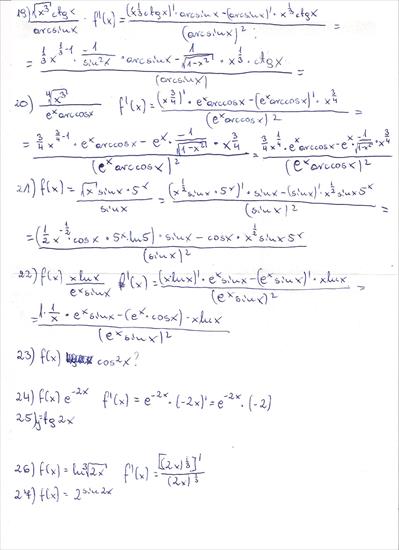 19) \frac{\sqrt[3]{x^3} ctgx}{arcsinx} f'(x) = \frac{(x^{\frac{1}{3}} ctgx)' · arcsinx - (arcsinx)' · x^{\frac{1}{3}} ctgx}{(arcsinx)^2} =
= \frac{\frac{1}{3} x^{\frac{1}{3}-1} · \frac{-1}{sin^2x} · arcsinx - \frac{1}{\sqrt{1-x^2}} · x^{\frac{1}{3}} · ctgx}{(arcsinx)} =
20) \frac{\sqrt[4]{x^3}}{e^x arccosx} f'(x) = \frac{(x^{\frac{3}{4}})' · e^x arccosx - (e^x arccosx)' · x^{\frac{3}{4}}}{(e^x arccosx)^2} =
= \frac{\frac{3}{4} x^{\frac{3}{4}-1} · e^x arccosx - e^x · \frac{-1}{\sqrt{1-x^2}} · x^{\frac{3}{4}}}{(e^x arccosx)^2} = \frac{\frac{3}{4} x^{\frac{1}{4}} · e^x arccosx - e^x · \frac{-1}{\sqrt{1-x^2}} · x^{\frac{3}{4}}}{(e^x arccosx)^2}
21) f(x) = \frac{\sqrt{x} sinx · 5^x}{sinx} f'(x) = \frac{(x^{\frac{1}{2}} sinx · 5^x)' · sinx - (sinx)' · x^{\frac{1}{2}} sinx 5^x}{(sinx)^2} =
= \frac{(\frac{1}{2} x^{-\frac{1}{2}} · cosx · 5^x ln5) · sinx - cosx · x^{\frac{1}{2}} sinx 5^x}{(sinx)^2}
22) f(x) \frac{x lnx}{e^x sinx} f'(x) = \frac{(x lnx)' · e^x sinx - (e^x sinx)' · x lnx}{(e^x sinx)^2} =
= \frac{1 · \frac{1}{x} · e^x sinx - (e^x · cosx) · x lnx}{(e^x sinx)^2}
23) f(x) cos^2x?
24) f(x) e^{-2x} f'(x) = e^{-2x} · (-2x)' = e^{-2x} · (-2)
25) y = tg 2x
26) f(x) = ln \sqrt[3]{2x} f'(x) = \frac{[(2x)^{\frac{1}{3}}]'}{(2x)^{\frac{1}{3}}}
27) f(x) = 2^{sin2x}